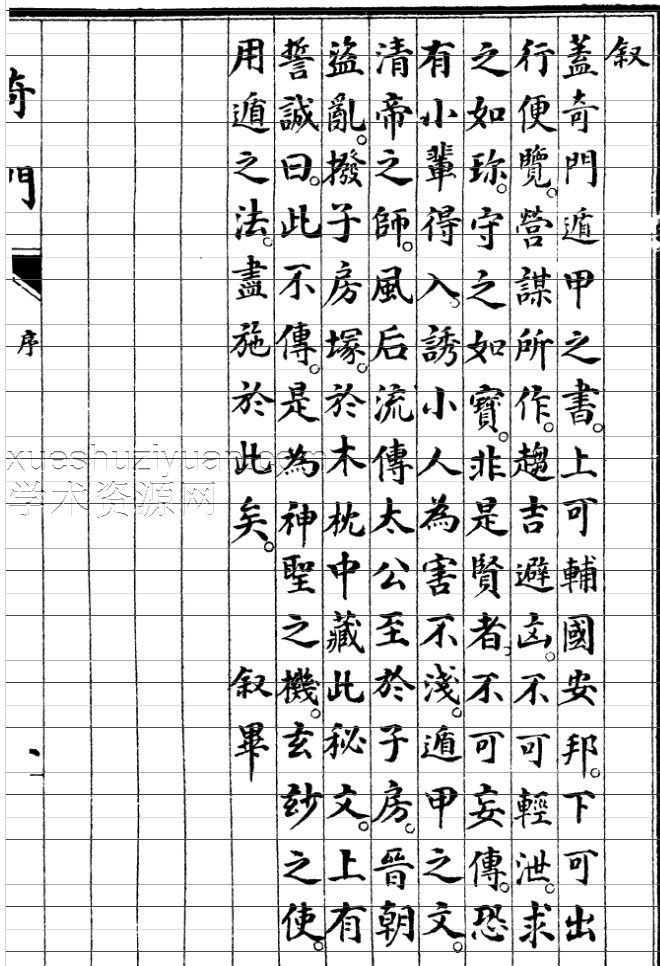 叙
蓋奇門遁甲之書。上可輔國安邦。下可出
行便覽。營謀所作。趨吉避凶。不可輕泄。求
之如珎。守之如寶。非是賢者。不可妄傳。恐
有小輩得入。誘小人為害不淺。遁甲之文。
清帝之師。風后流傳太公至於子房。晉朝
盜亂。撥子房塚。於木枕中藏此秘文。上有
誓誠曰。此不傳。是為神聖之機。玄玅之使。
用遁之法。盡施於此矣。 叙畢
奇門
序
xueshuziyuan.com
学术资源网